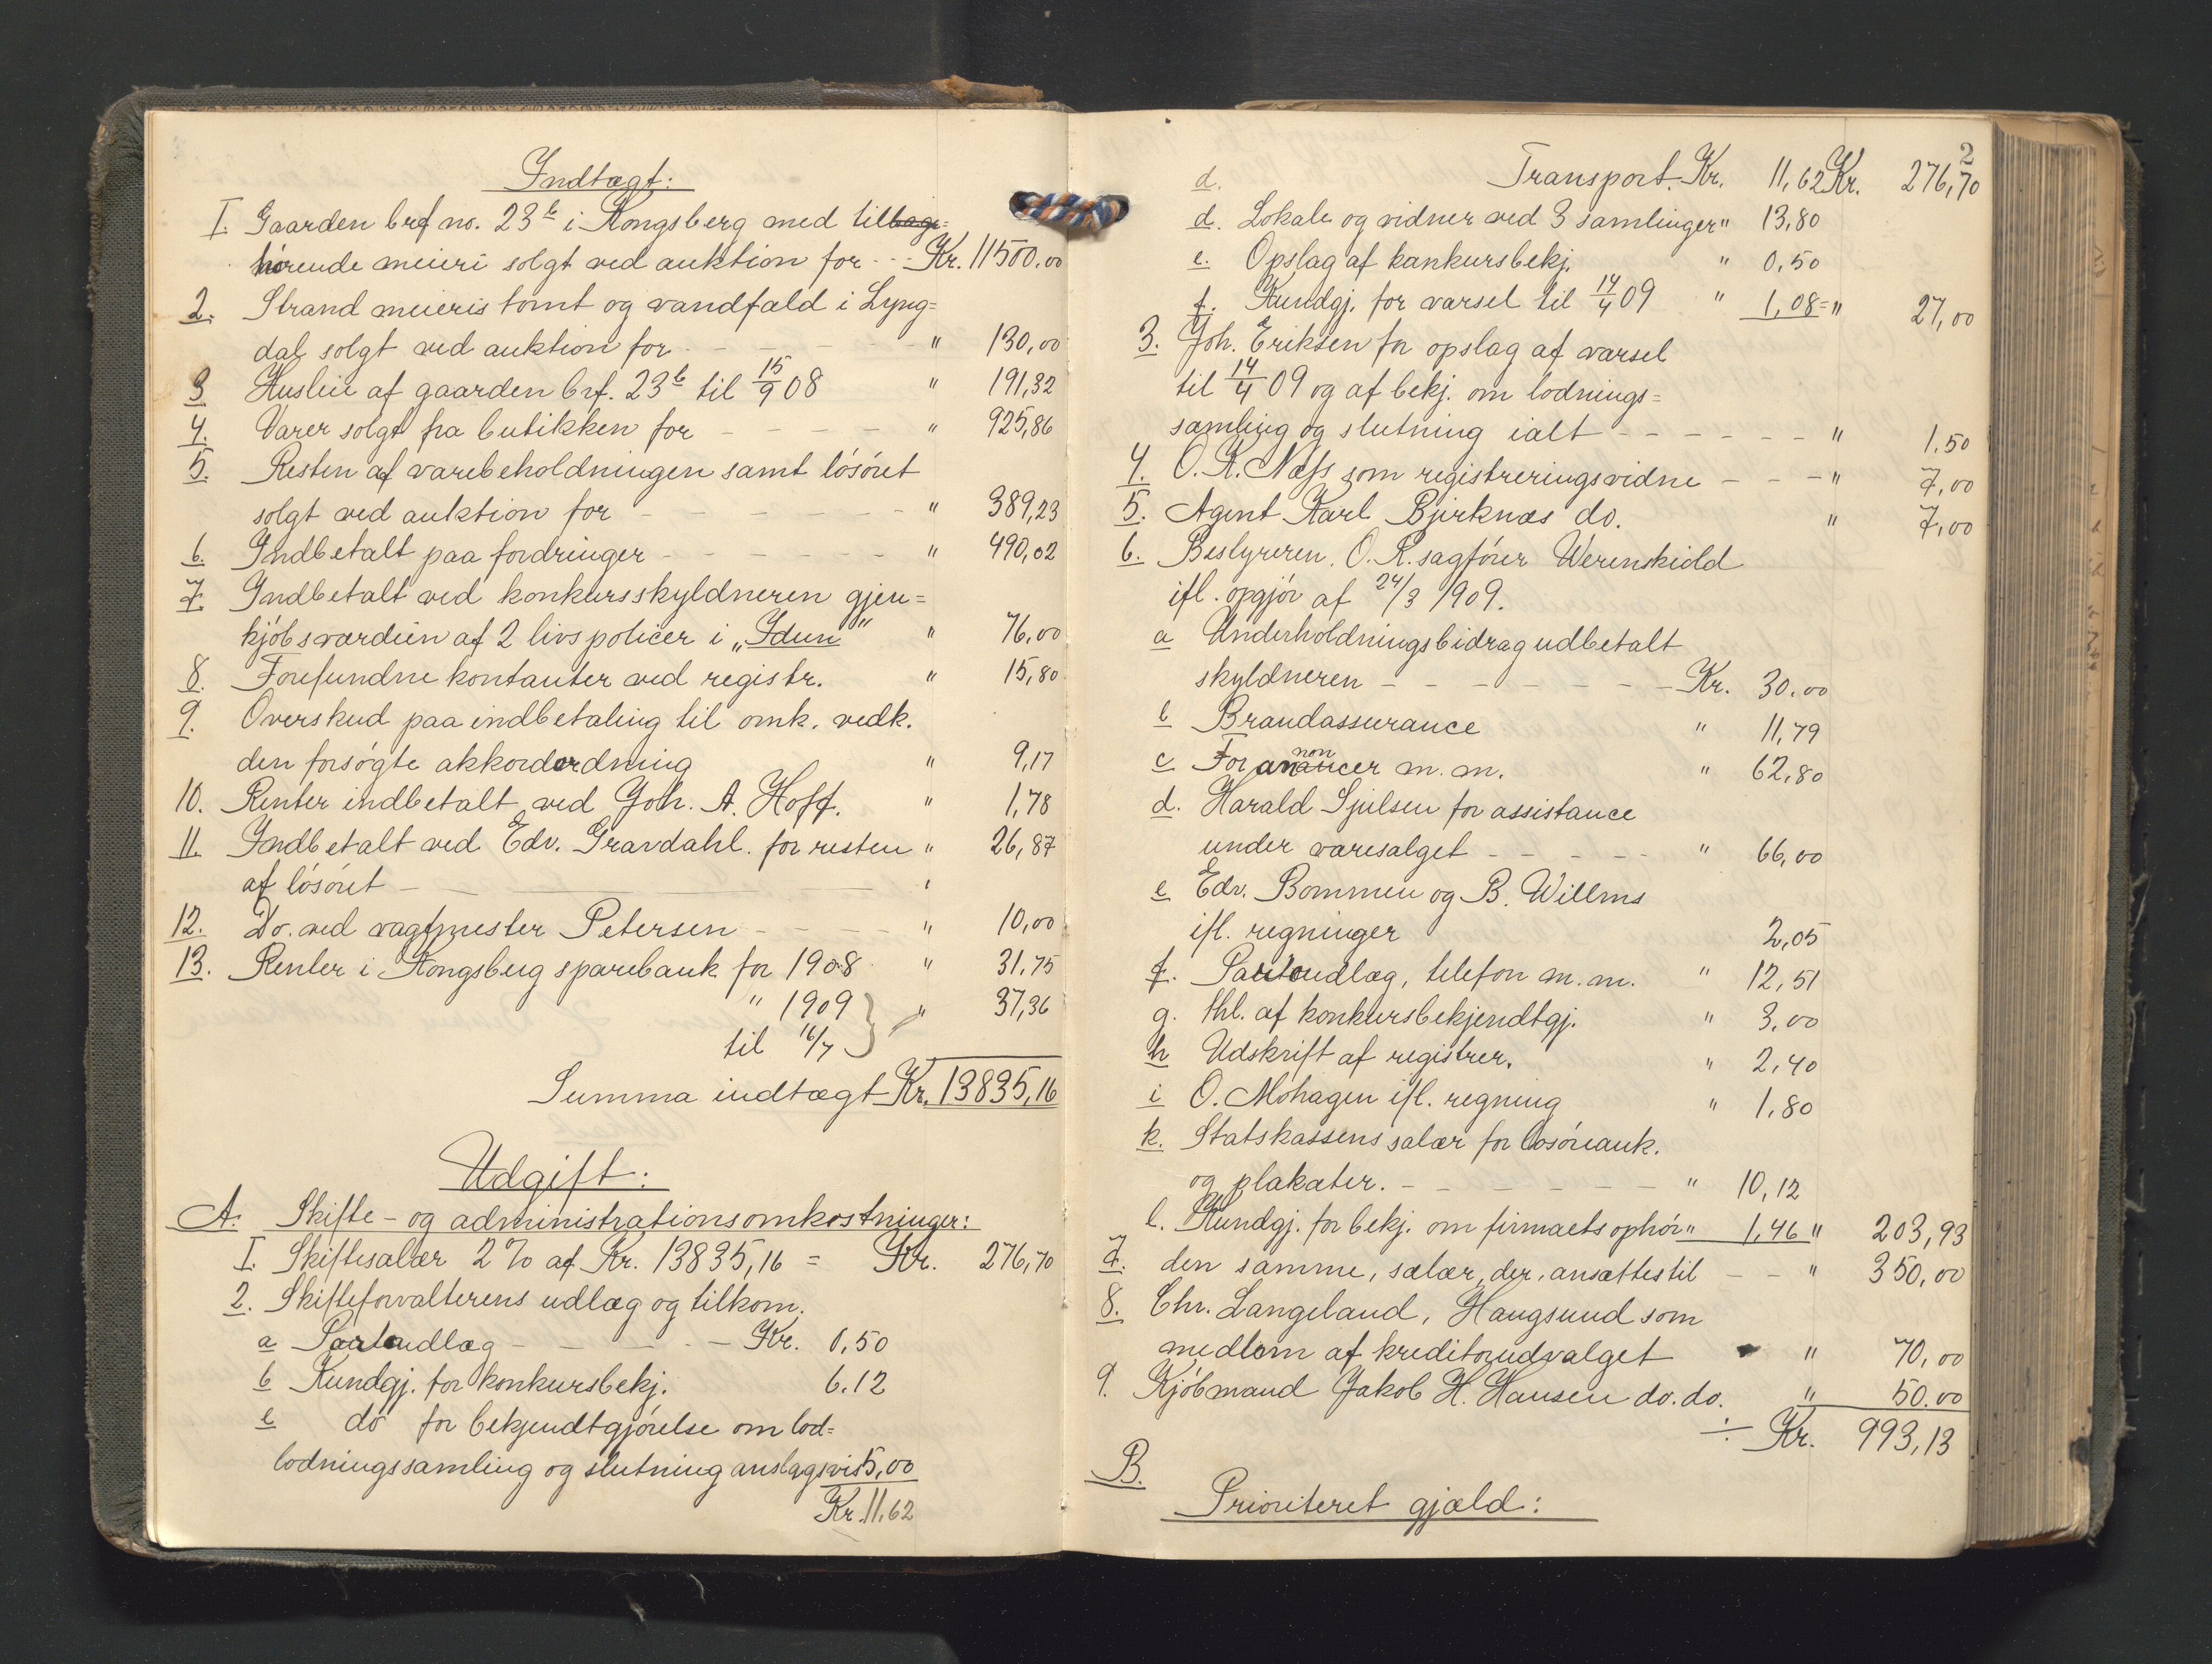 Indtægt:
I. Gaarden brf no. 23b i Kongsberg med tilbage=
hørende meieri solgt ved auktion for - - Kr. 11500.00
2. Strand meieris tomt og vandfald i Lyng=
dal solgt ved auktion for - - - - - - " 130,00
3 Husleie af gaarden brf. 23b til 15/9 08 " 191,32
4. Varer solgt fra butikken for - - - - - " 925,86
5. Resten af varebeholdningen samt løsøret
solgt ved auktion for - - - - - - - " 389,23
6. Indbetalt paa fordringer - - - - - - " 490,02
7. Indbetalt ved konkursskyldneren gjen=
kjøbsværdien af 2 livspolicer i „Idun" " 76,00
8. Forefundne kontanter ved registr. " 15,80
9. Overskud paa indbetaling til omk. vedk.
den forsøgte akkordordning " 9,17
10. Renter indbetalt ved Joh. A. Hoff. " 1,78
11. Indbetalt ved Edv. Gravdahl. for resten " 26,87
af løsøret -
12. Do. ved vagtmester Petersen - - - - " 10,00
13. Renter i Kongsberg sparebank for 1908 " 31.75
" 1909 } " 37,36
til 16/7
Summa indtægt Kr. 13835,16
Udgift:
A. Skifte- og administrationsomkostninger:
I. Skiftesalær 2 % af Kr. 13835,16 = Kr. 276,70
2. Skifteforvalterens udlæg og tilkom.
a Portoudlæg - - - - - Kr. 0,50
b Kundgj. for konkursbekj. 6.12
c do for bekjendtgjørelse om lod=
lodningssamling og slutning anslagsvis 5,00
Kr. 11,62
2
d. Transport. Kr. 11,62 Kr. 276,70
d. Lokale og vidner ved 3 samlinger " 13,80
e. Opslag af konkursbekj. " 0,50
f. Kundgj. for varsel til 14/4 09 " 1,08 = " 27,00
3. Joh. Eriksen for opslag af varsel
til 14/4 09 og af bekj. om lodnings=
samling og slutning ialt - - - - - - " 1.50
4. O. K. Næss som registreringsvidne - - - " 7,00
5. Agent Karl Bjerknæs do. " 7,00
6. Bestyreren. O. R. sagfører Werenskiold
ifl. opgjør af 24/3 1909.
a Underholdningsbidrag udbetalt
skyldneren - - - - - - - Kr. 30.00
b Brandassurance " 11,79
c For annoncer m. m. " 62,80
d. Harald Sjulsen for assistance
under varesalget - - - - - " 66,00
e Edv. Bommen og B. Willms
ifl. regninger 2,05
f. Portoudlæg, telefon m. m. " 12,51
g. thl. af konkursbekjendtgj. " 3,00
h Udskrift af registrer. " 2,40
i O. Mohagen ifl. regning " 1,80
k. Statskassens salær for løsøreauk.
og plakater. - - - - - - - " 10,12
l. Kundgj. for bekj. om firmaets ophør " 1,46 " 203,93
7. den samme, salær, der, ansættes til - - " 350,00
8. Chr. Langeland, Haugsund som
medlem af kreditorudvalget " 70,00
9. Kjøbmand Jakob H. Hansen do. do. " 50.00
÷ Kr. 993,13
B.
Prioriteret gjæld: